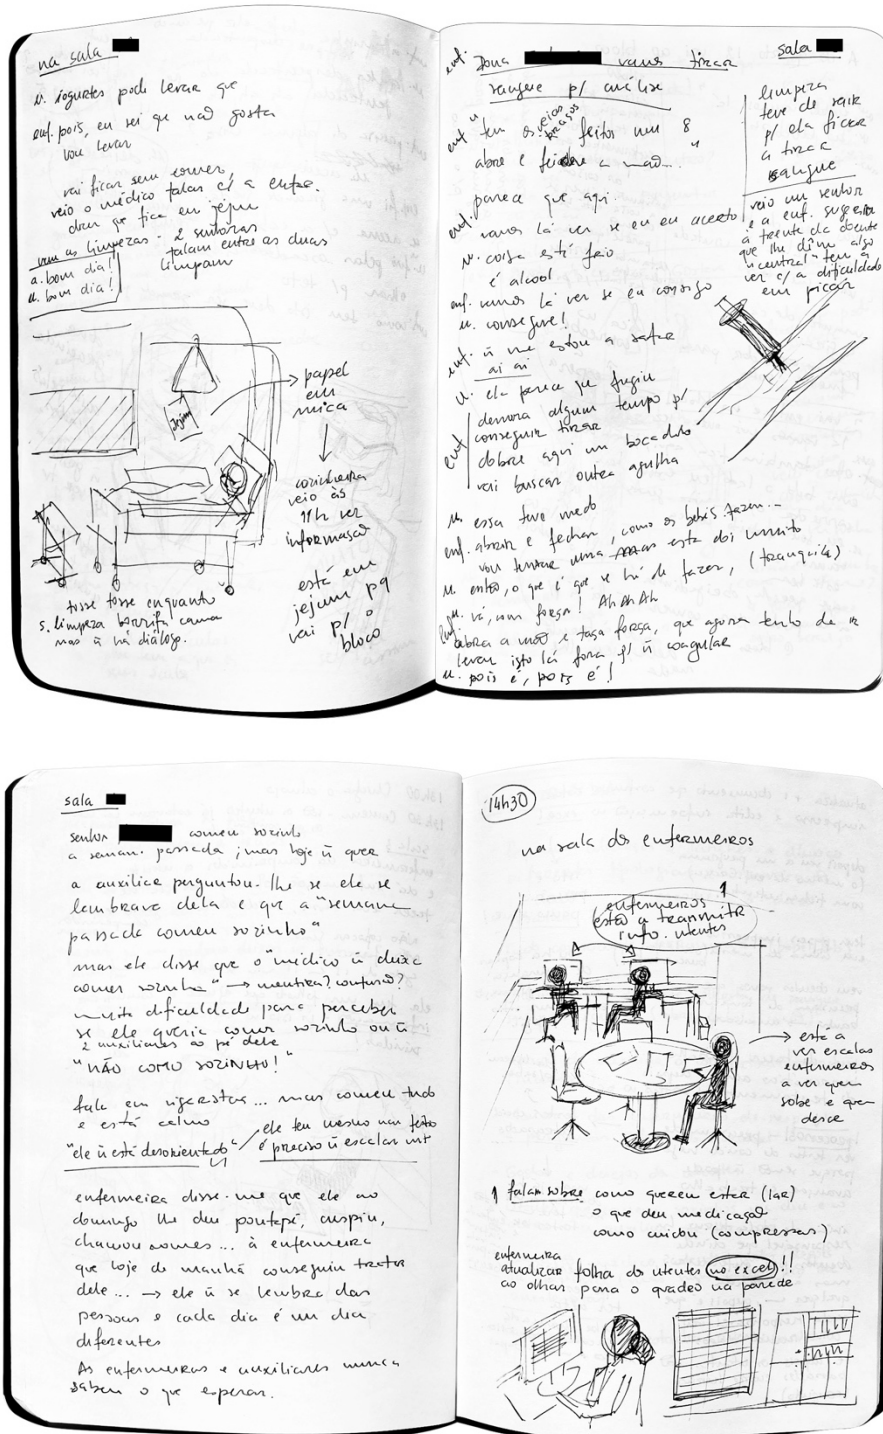 na sala
u. iogurtes pode levar que
enf. pois, eu sei que não gosta
vou levar
vai ficar sem comer,
veio o médico falar c/ a enfer.
dizer que fica em jejum
vem as limpezas - 2 senhoras
falam entre as duas
limpam
a. bom dia!
u. bom dia!
Jejum
→ papel
em
mica
↓
cozinheira
veio às
11h ver
informação
está em
jejum pq
vai p/ o
bloco
tosse tosse enquanto
s. limpeza borrifa cama
mas ñ há diálogo.
sala
enf. Dona vamos tirar
sangue p/ análise
enf. "tem os braços feitos num 8
veias
abre e feche a mão..."
parece que aqui
enf. vamos lá ver se eu acerto
u. coisa está feio
é alcool
enf. vamos lá ver se eu consigo
u. consegue!
enf. ñ me estou a safar
ai ai
u. ela parece que fugiu
enf. demora algum tempo p/
conseguir tirar
dobre aqui um bocadinho
vai buscar outra agulha
u. essa teve medo
enf. abrir e fechar, como os bebés fazem...
vou tentar uma mas esta doi muito
u. então, o que é que se há de fazer, (tranquila)
u. vá, com força! Ah Ah Ah
enf. abra a mão e faça força, que agora tenho de ir
levar isto lá fora p/ ñ coagular
u. pois é, pois é!
limpeza
teve de sair
p/ ela ficar
a tirar
sangue
veio um senhor
e a enf. sugeriu
à frente da doente
que lhe dêm algo
"central" tem a
ver c/ a dificuldade
em picar
sala
senhor comeu sozinho
a seman. passada; mas hoje ñ quer
a auxiliar perguntou-lhe se ele se
lembrava dela e que a "semana
passada comeu sozinho"
mas ele disse que o "médico ñ deixa
comer sozinho" → mentira? confusão?
muita dificuldade para perceber
se ele queria comer sozinho ou ñ
2 auxiliares ao pé dele
"NÃO COMO SOZINHO!"
fala em vigaristas... mas comeu tudo
e está calmo
"ele ñ está desorientado"
ele tem mesmo mau feitio
é preciso ñ escalar mt
enfermeira disse-me que ele no
domingo lhe deu pontapé, cuspiu,
chamou nomes... à enfermeira
que hoje de manhã conseguiu tratar
dele... → ele ñ se lembra das
pessoas e cada dia é um dia
diferentes
As enfermeiras e auxiliares nunca
sabem o que esperar.
14h30
na sala dos enfermeiros
1
enfermeiros
estão a transmitir
info. utentes
→ esta a
ver escalas
enfermeiros
a ver quem
sobe e quem
desce
1 falam sobre como querem estar (lar)
o que deu medicação
como cuidou (compressas)
enfermeira
atualizar folha dos utentes no excel!!
ao olhar para o quadro na parede